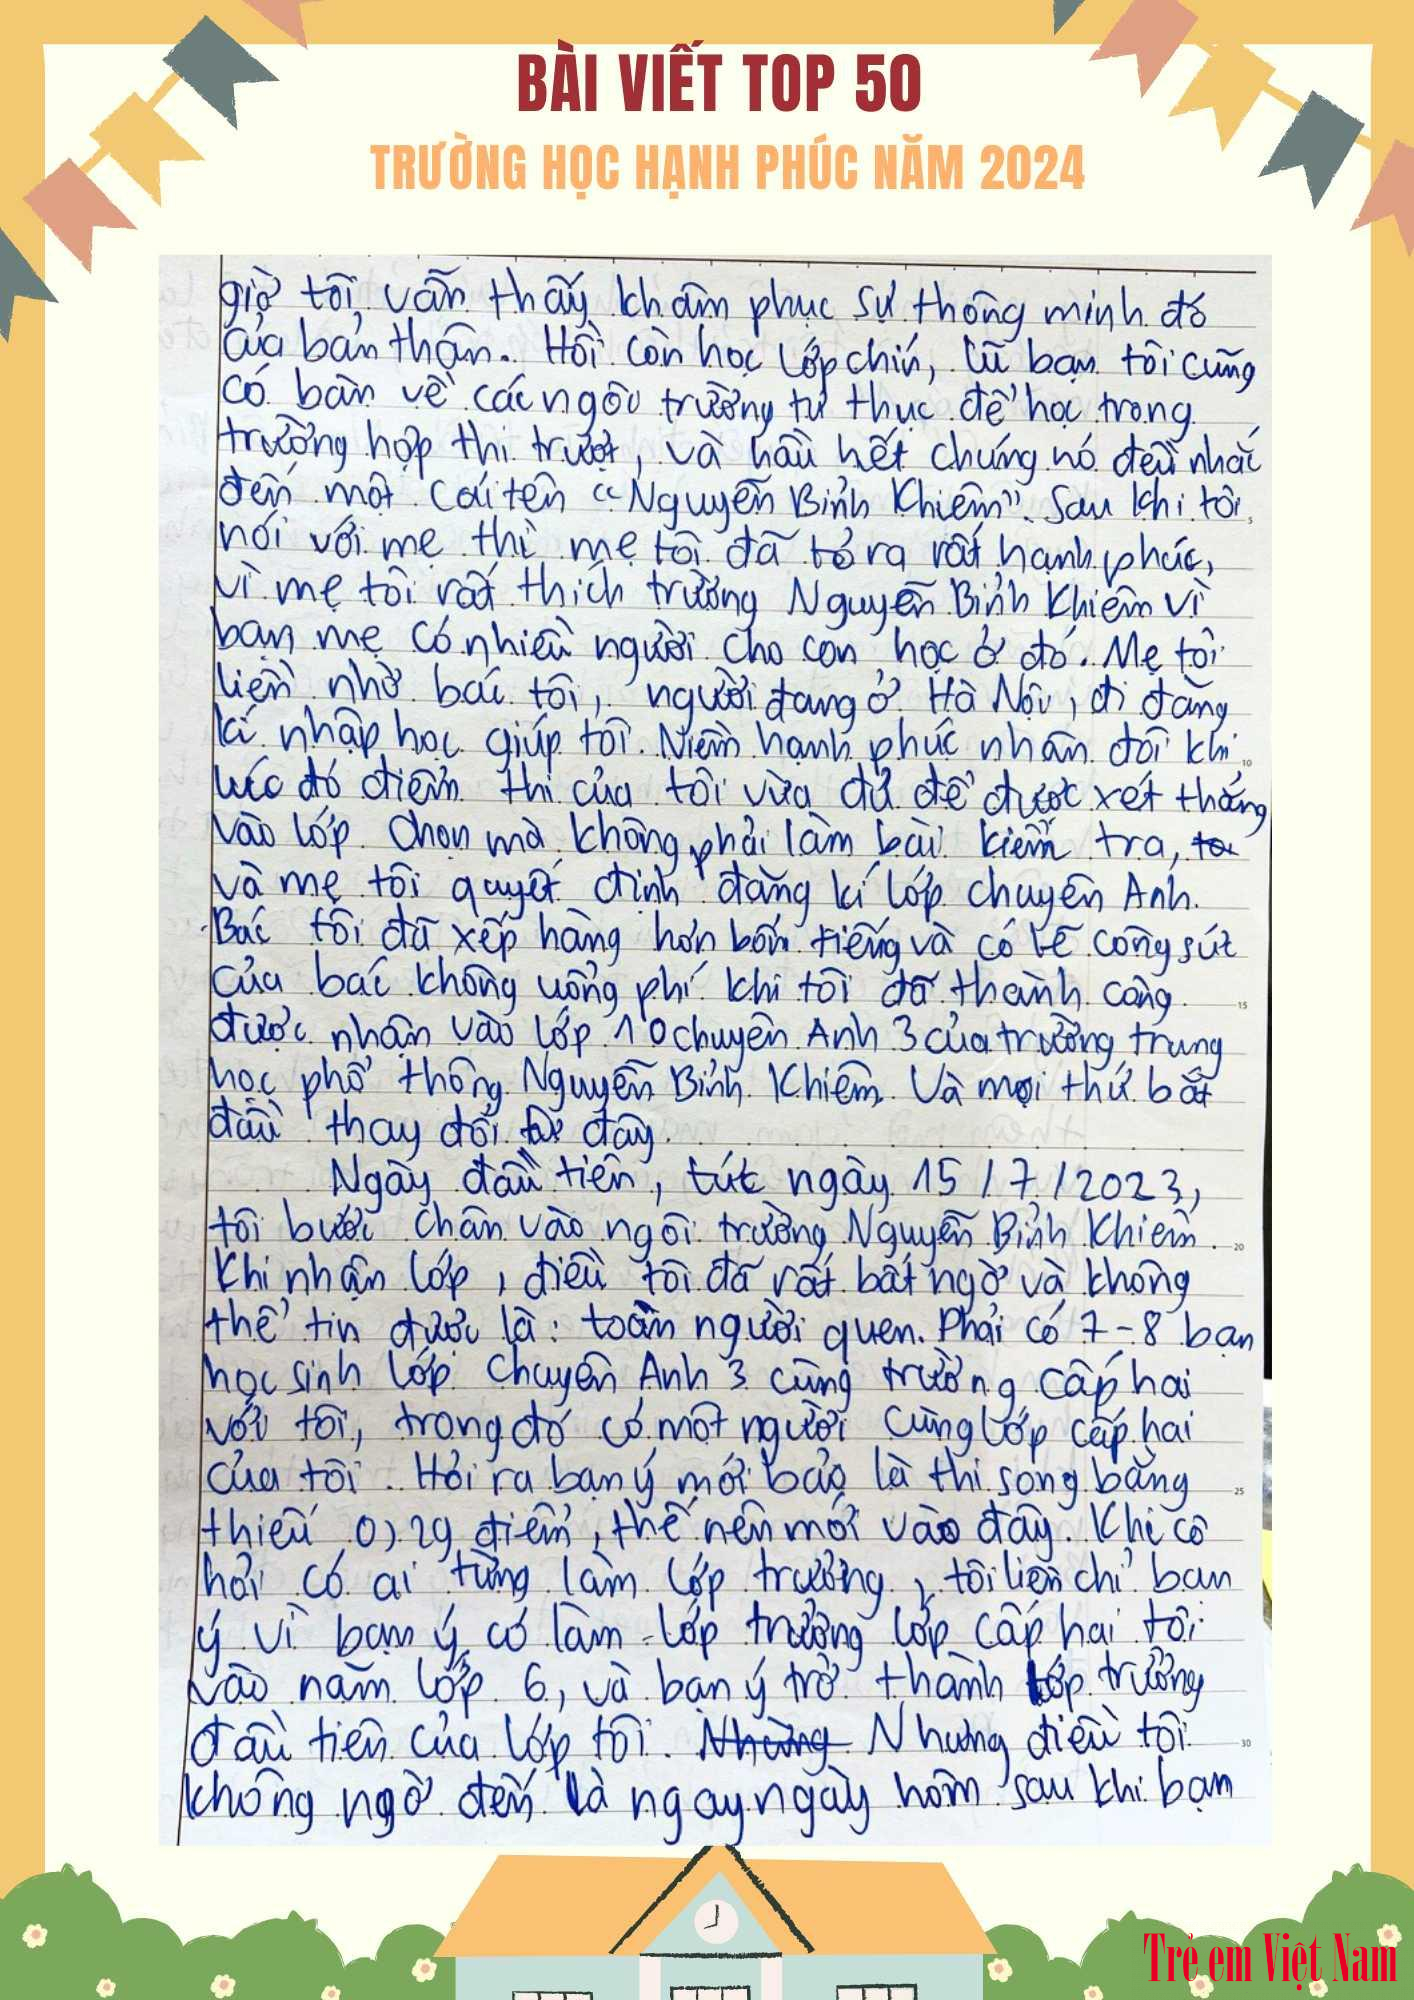 BÀI VIẾT TOP 50
TRƯỜNG HỌC HẠNH PHÚC NĂM 2024
giờ tôi vẫn thấy khâm phục sự thông minh đó
của bản thân. Hồi còn học lớp chín, lũ bạn tôi cũng
có bàn về các ngôi trường tư thục để học trong
trường hợp thi trượt, và hầu hết chúng nó đều nhắc
đến một cái tên "Nguyễn Bỉnh Khiêm". Sau khi tôi
nói với mẹ thì mẹ tôi đã tỏ ra rất hạnh phúc,
vì mẹ tôi rất thích trường Nguyễn Bỉnh Khiêm vì
bạn mẹ có nhiều người cho con học ở đó. Mẹ tôi
liền nhờ bác tôi, người đang ở Hà Nội, đi đăng
kí nhập học giúp tôi. Niềm hạnh phúc nhân đôi khi
lúc đó điểm thi của tôi vừa đủ để được xét thẳng
vào lớp chọn mà không phải làm bài kiểm tra,
và mẹ tôi quyết định đăng kí lớp chuyên Anh.
Bác tôi đã xếp hàng hơn bốn tiếng và có lẽ công sức
của bác không uổng phí khi tôi đã thành công
được nhận vào lớp 10 chuyên Anh 3 của trường trung
học phổ thông Nguyễn Bỉnh Khiêm. Và mọi thứ bắt
đầu thay đổi từ đây.
Ngày đầu tiên, tức ngày 15/7/2023,
tôi bước chân vào ngôi trường Nguyễn Bỉnh Khiêm.
Khi nhận lớp, điều tôi đã rất bất ngờ và không
thể tin được là: toàn người quen. Phải có 7-8 bạn
học sinh lớp Chuyên Anh 3 cùng trường cấp hai
với tôi, trong đó có một người cùng lớp cấp hai
của tôi. Hỏi ra bạn ý mới bảo là thi song bằng
thiếu 0,29 điểm, thế nên mới vào đây. Khi cô
hỏi có ai từng làm lớp trưởng, tôi liền chỉ bạn
ý vì bạn ý có làm lớp trưởng lớp cấp hai tôi
vào năm lớp 6, và bạn ý trở thành lớp trưởng
đầu tiên của lớp tôi. Những Nhưng điều tôi
không ngờ đến là ngay ngày hôm sau khi bạn
5
10
15
20
25
30
Trẻ em Việt Nam